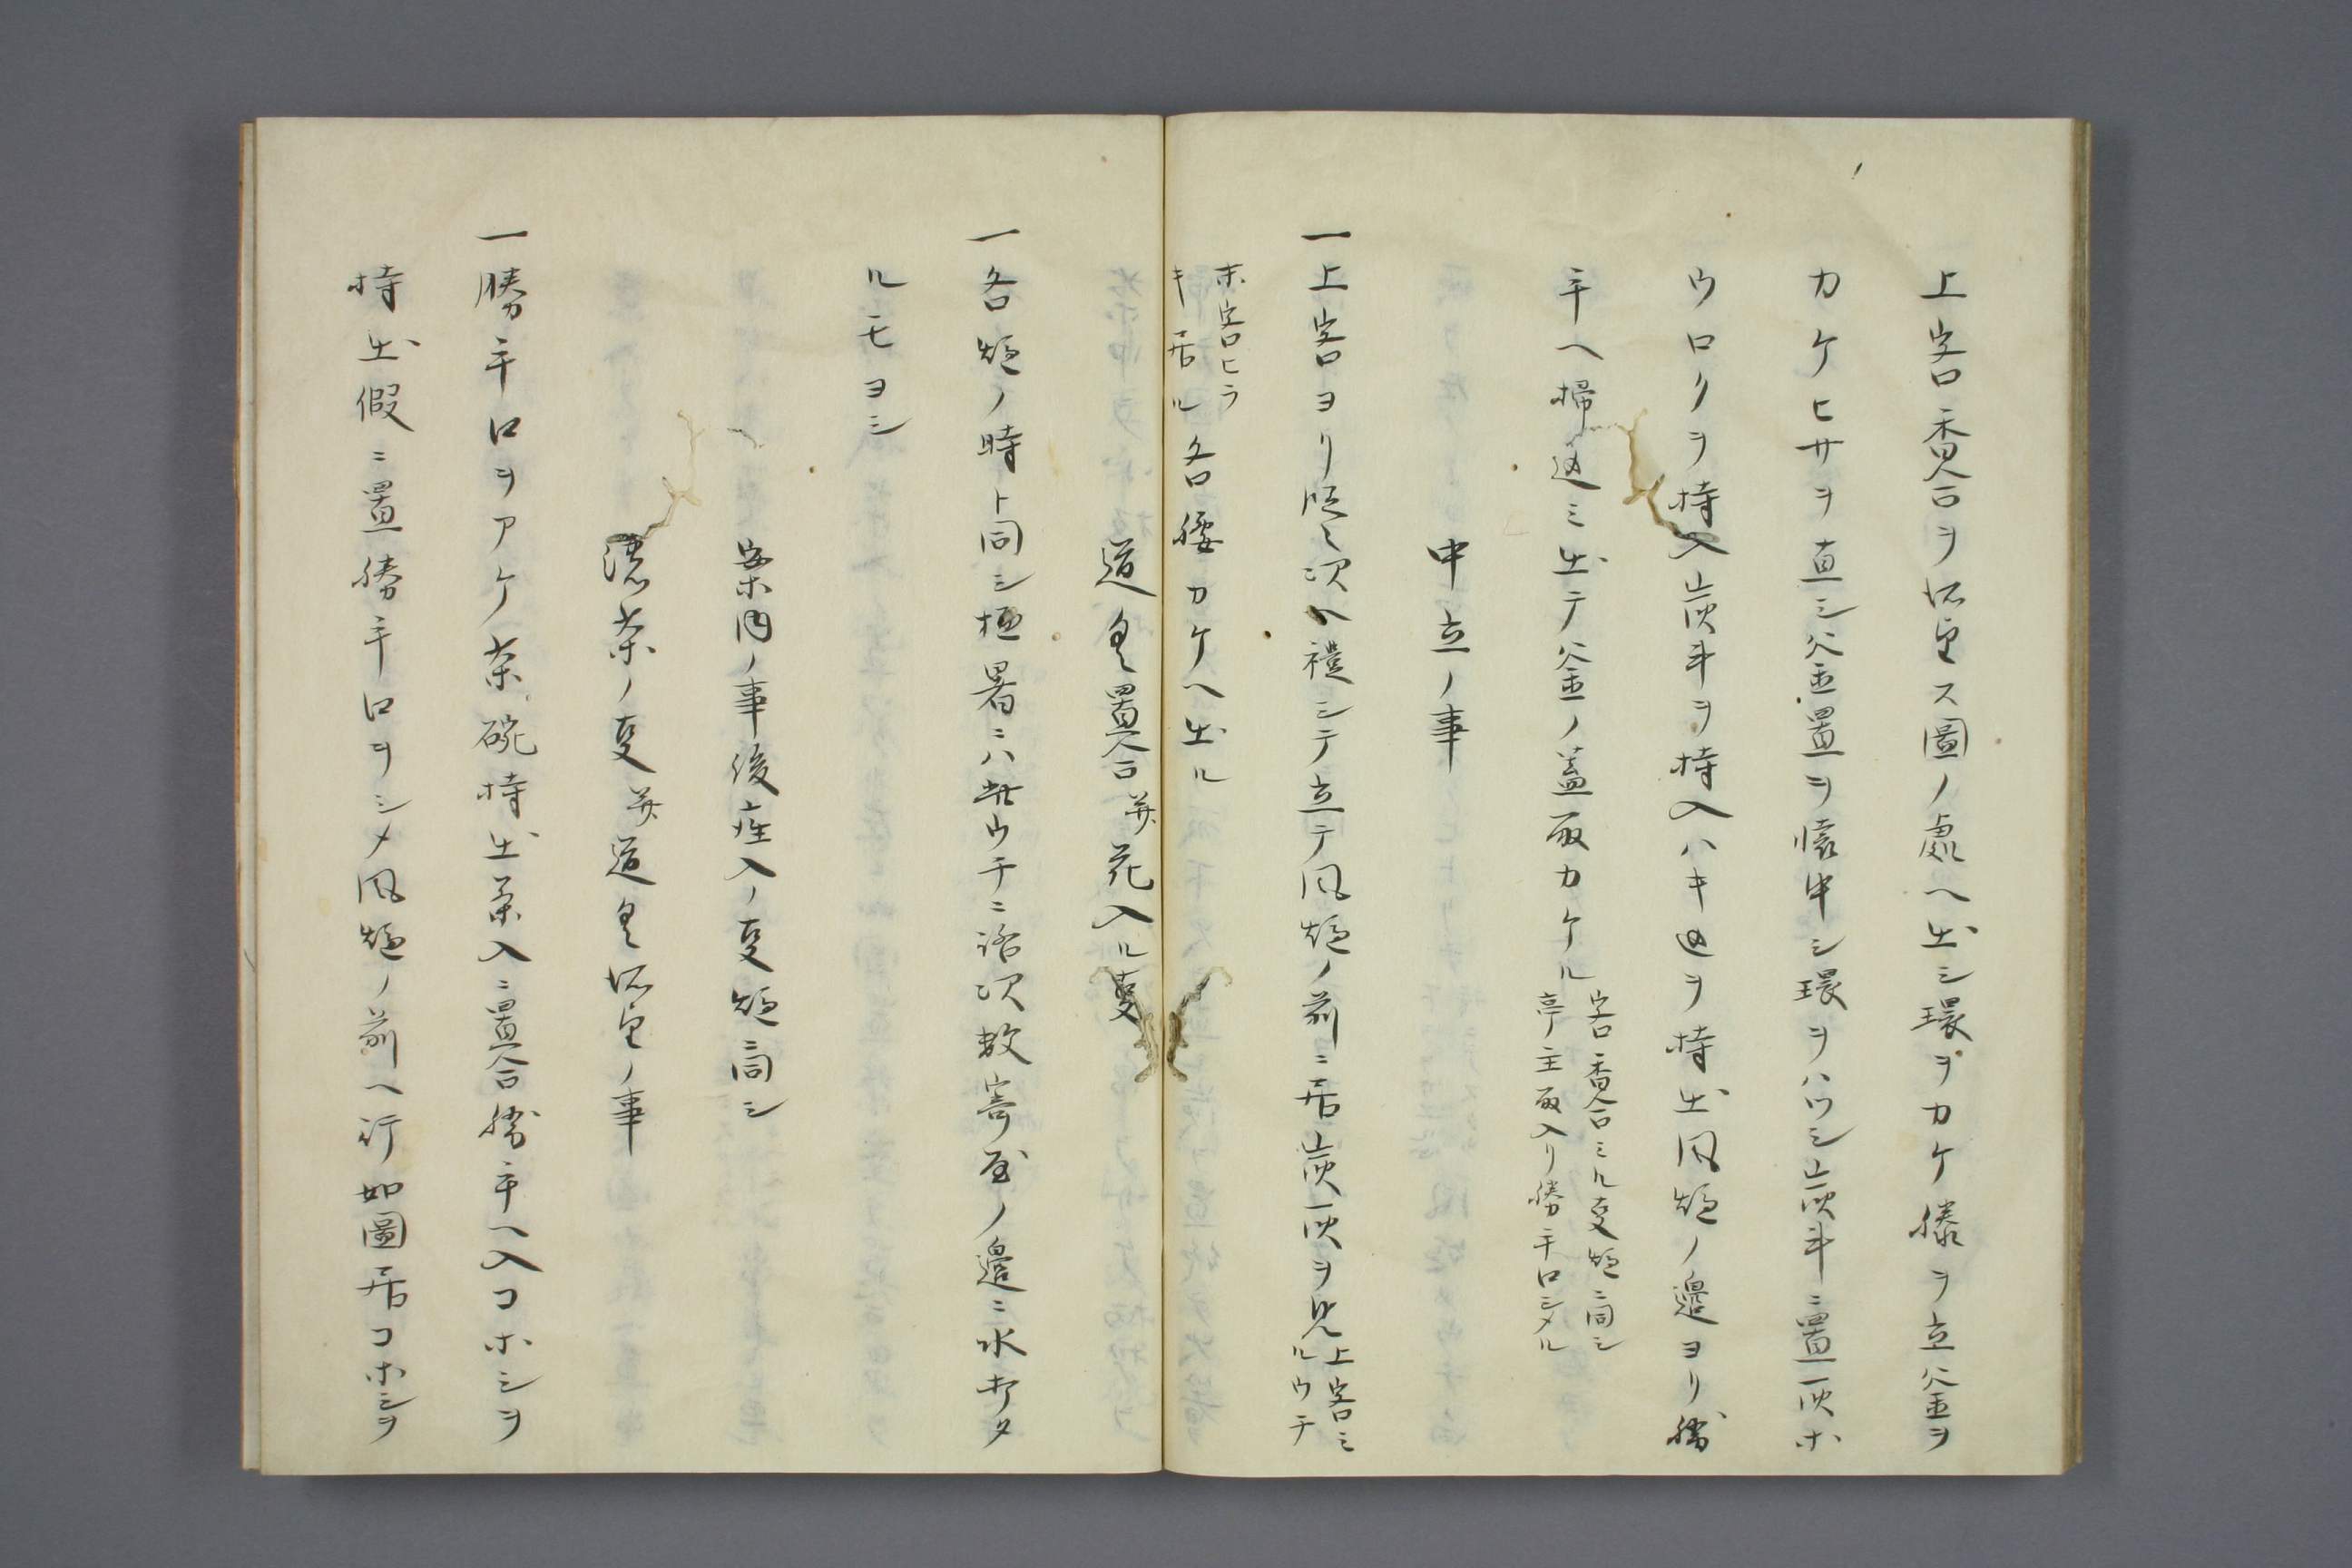 上客香合ヲ所望ス圖ノ處ヘ出シ環ヲカケ膝ヲ立釜ヲ
カケヒサヲ直シ釜置ヲ懐中シ環ヲハツシ炭斗ニ置灰ホ
ウロクヲ持入炭斗ヲ持入ハキ込ヲ持出風炉ノ邊ヨリ勝
手ヘ掃込ミ出テ釜ノ蓋取カケル
客香合ミル叓炉ニ同シ
亭主取入リ勝手口シメル
中立ノ事
一上客ヨリ段々次ヘ禮シテ立テ風炉ノ前ニ居炭灰ヲ見
上客ミ
ルウチ
末客ヒラ
キ居ル
各腰カケヘ出ル
道具置合并花入ル叓
一各炉ノ時ト同シ極暑ニハ此ウチニ路次数寄屋ノ邊ニ水ホタ
ルモヨシ
案内ノ事後座入ノ叓炉ニ同シ
濃茶ノ叓并道具所望ノ事
一勝手口ヲアケ茶碗持出茶入ニ置合勝手ヘ入コホシヲ
持出假ニ置勝手口ヲシメ風炉ノ前ヘ行如圖居コホシヲ